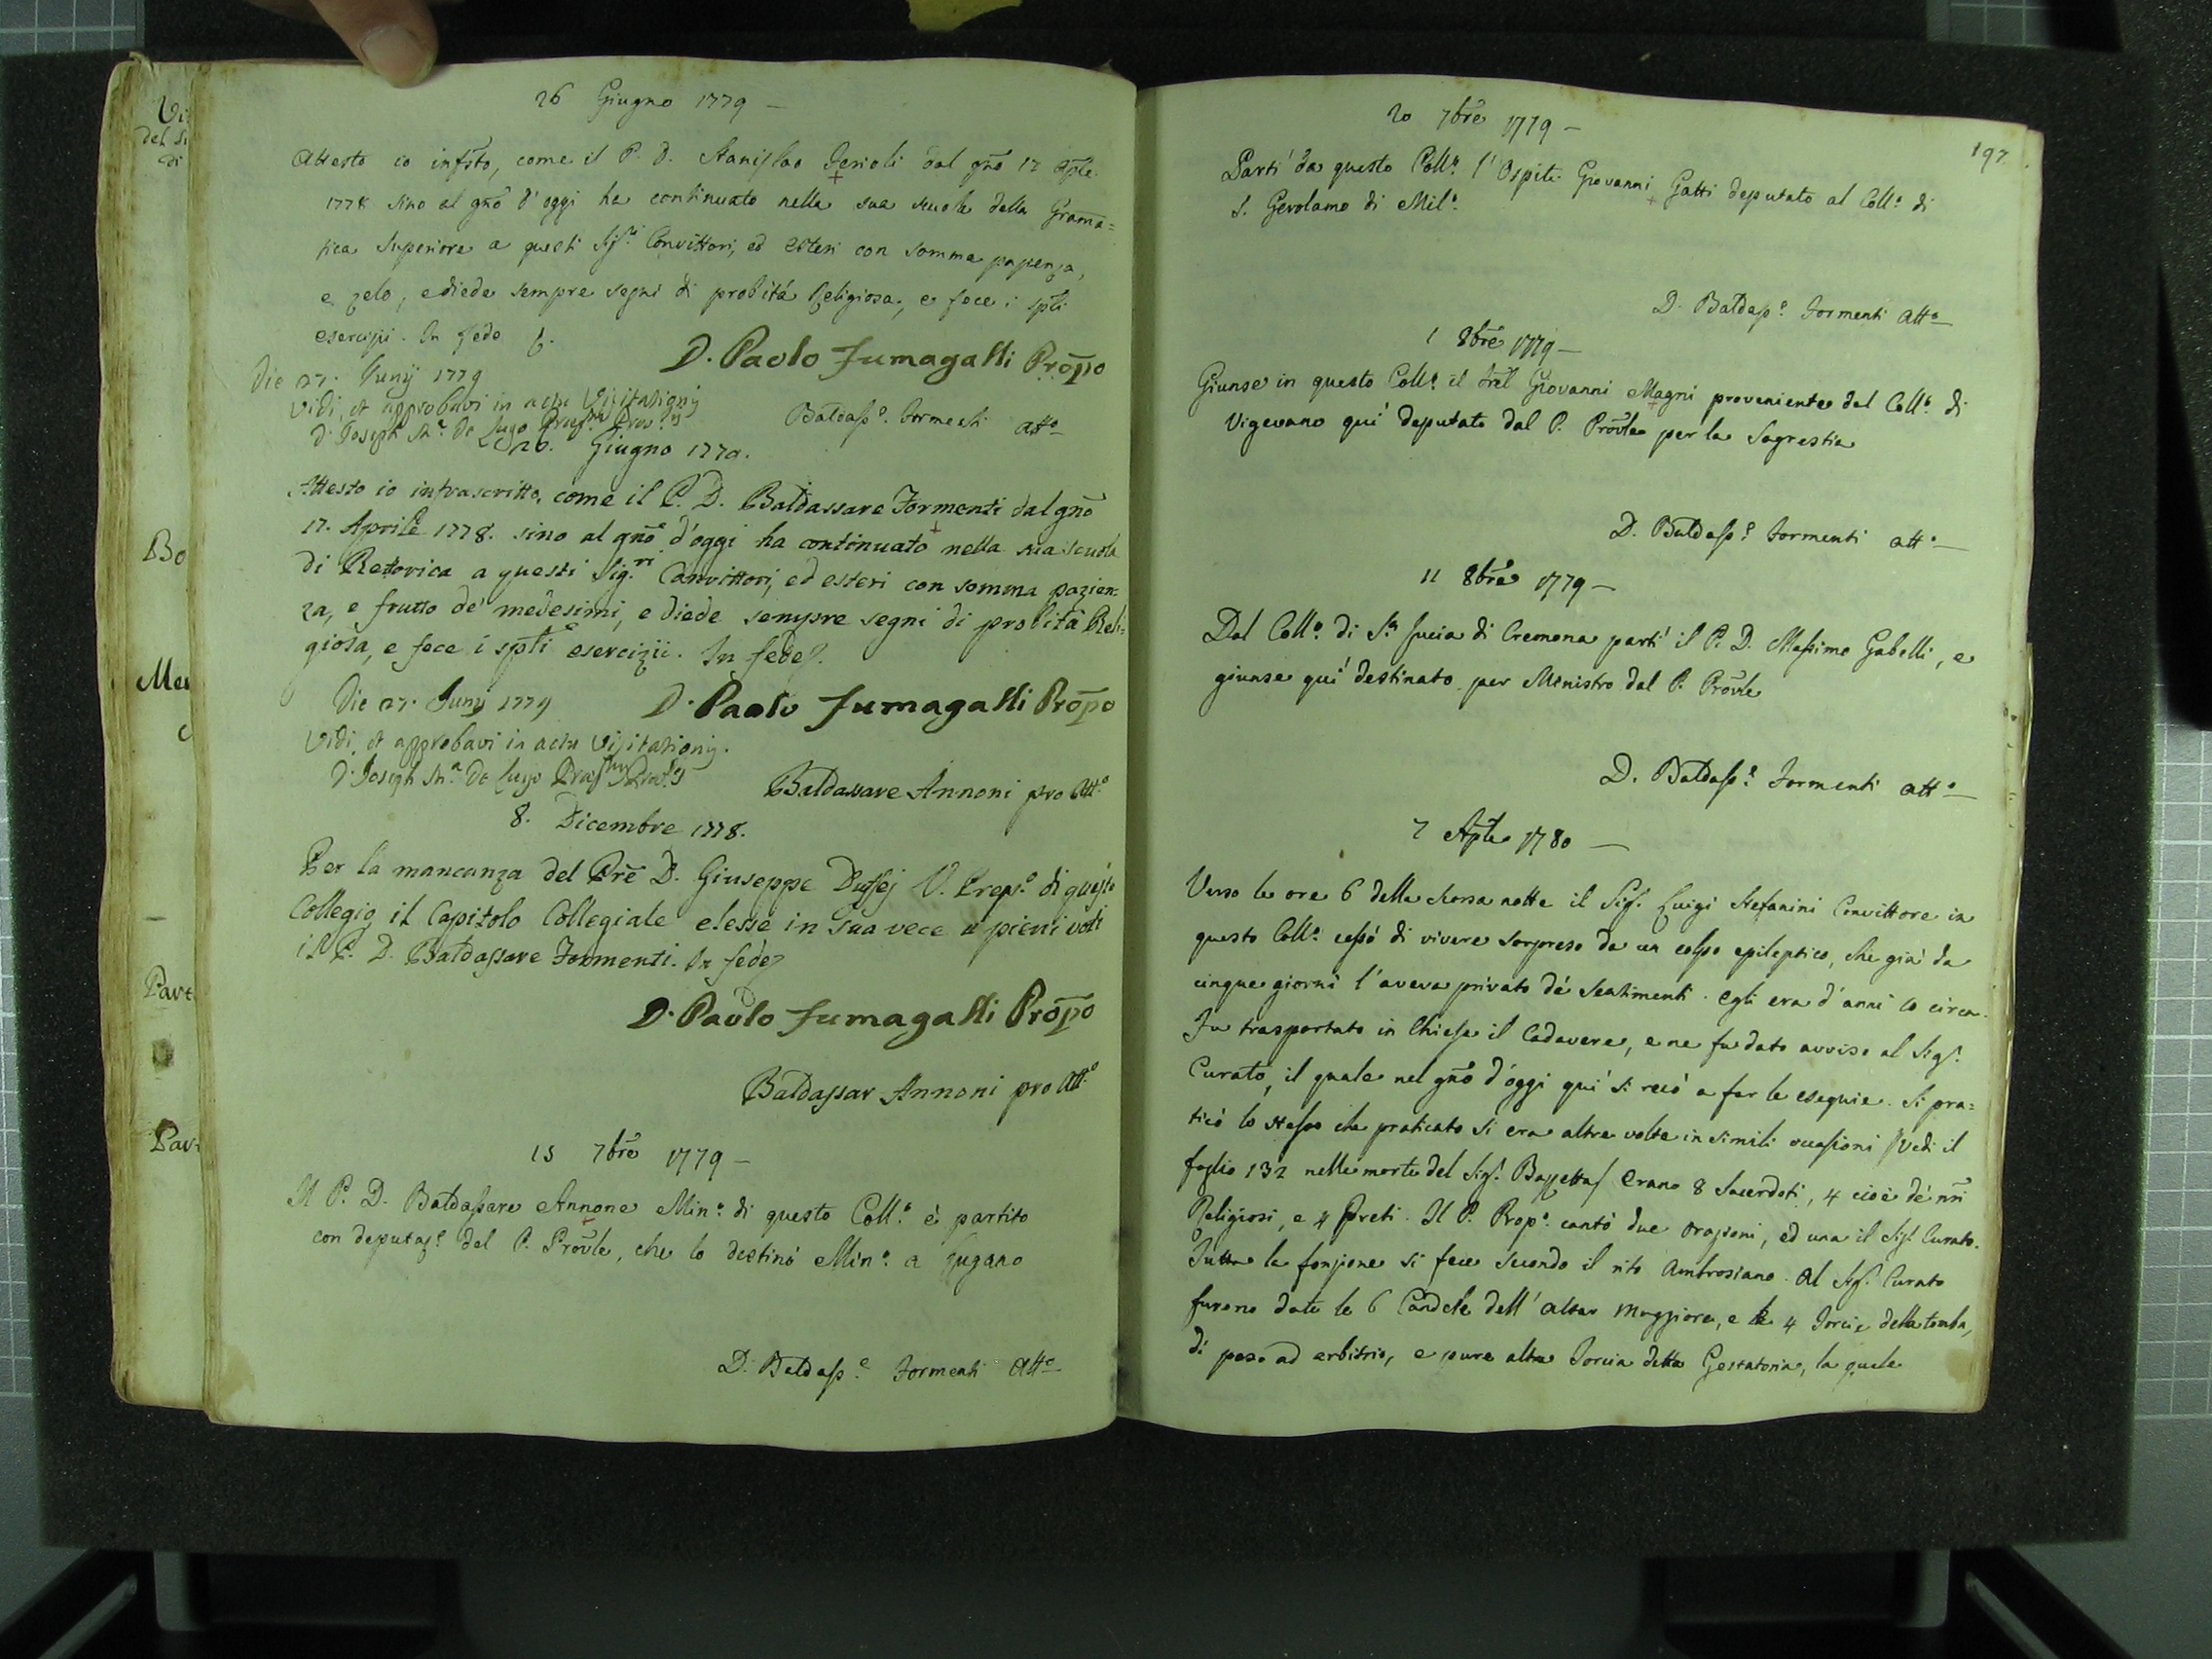 26 Giugno 1779 —
Attesto io infrõ, come il P. D. Stanislao Gerioli dal gño 17 Aple
1778 sino al gño d'oggi ha continuato nella sua scuola della Grama=
tica Superiore a questi Sigri Convittori, ed esteri con somma pazienza,
e zelo, e diede sempre segni di probità Religiosa, e fece i spli
esercizii. In fede
D. Paolo Fumagalli Propo
Die 27. Junij 1779
Vidi, et approbavi in actu Visitationis
D. Joseph Ma. De Lugo
Baldasse. Formenti Atto
26. Giugno 1779.
Attesto io infrascritto, come il P. D. Baldassare Formenti dal gño
17. Aprile 1778. sino al gño d'oggi ha continuato nella sua scuola
di Retorica a questi Sig.ri Convittori, ed esteri con somma pazien=
za, e frutto de' medesimi, e diede sempre segni di probità Reli=
giosa, e fece i spli esercizii. In fede
Die 27. Junij 1779
D. Paolo Fumagalli Propo
Vidi, et approbavi in actu Visitationis.
D. Joseph Ma. De Lugo
Baldassare Annoni pro Att.o
8. Dicembre 1778.
Per la mancanza del Pre D. Giuseppe V. Prep.o di questo
Collegio, il Capitolo Collegiale elesse in sua vece a pieni voti
il P. D. Baldassare Formenti. In fede
D. Paolo Fumagalli Propo
Baldassar Annoni pro Att.o
15 7bre 1779 —
Il P. D. Baldassare Annone Min.o di questo Coll.o è partito
con deputaz.e del P. Provle, che lo destinò Min.o a Lugano
D. Baldass.e Formenti Att.o
197
20 7bre 1779 —
Partì da questo Coll.o l'Ospite Giovanni Gatti deputato al Coll.o di
S. Gerolamo di Mil.o
D. Baldass.e Formenti Att.o —
1 8bre 1779 —
Giunse in questo Coll.o il Frel Giovanni Magni proveniente dal Coll.o di
Vigevano qui deputato dal P. Provle per la Sagrestia
D. Baldass.e Formenti Att.o —
11 8bre 1779 —
Dal Coll.o di S.a Lucia di Cremona partì il P. D. Massimo Gabelli, e
giunse qui destinato per Ministro dal P. Provle
D. Baldass.e Formenti Att.o —
7 Aple 1780 —
Verso le ore 6 della scorsa notte il Sigr. Luigi Stefanini Convittore in
questo Coll.o cessò di vivere sorpreso da un colpo epileptico, che già da
cinque giorni l'aveva privato de' sentimenti. Egli era d'anni 10 circa.
Fu trasportato in Chiesa il Cadavere, e ne fu dato avviso al Sigr.
Curato, il quale nel gño d'oggi qui si recò a far le esequie. Si pra=
ticò lo stesso che praticato si era altre volte in simili occasioni (Vedi il
foglio 132 nella morte del Sigr. Bazzetta) Erano 8 Sacerdoti, 4 cioè de' nri
Religiosi, e 4 Preti. Il P. Prop.o cantò due orazioni, ed una il Sigr. Curato.
Tutta la fonzione si fece secondo il rito Ambrosiano. Al Sigr. Curato
furono date le 6 Candele dell'altar maggiore, e le 4 Torcie della tomba,
di peso ad arbitrio, e pure altra Torcia detta Gestatoria, la quale